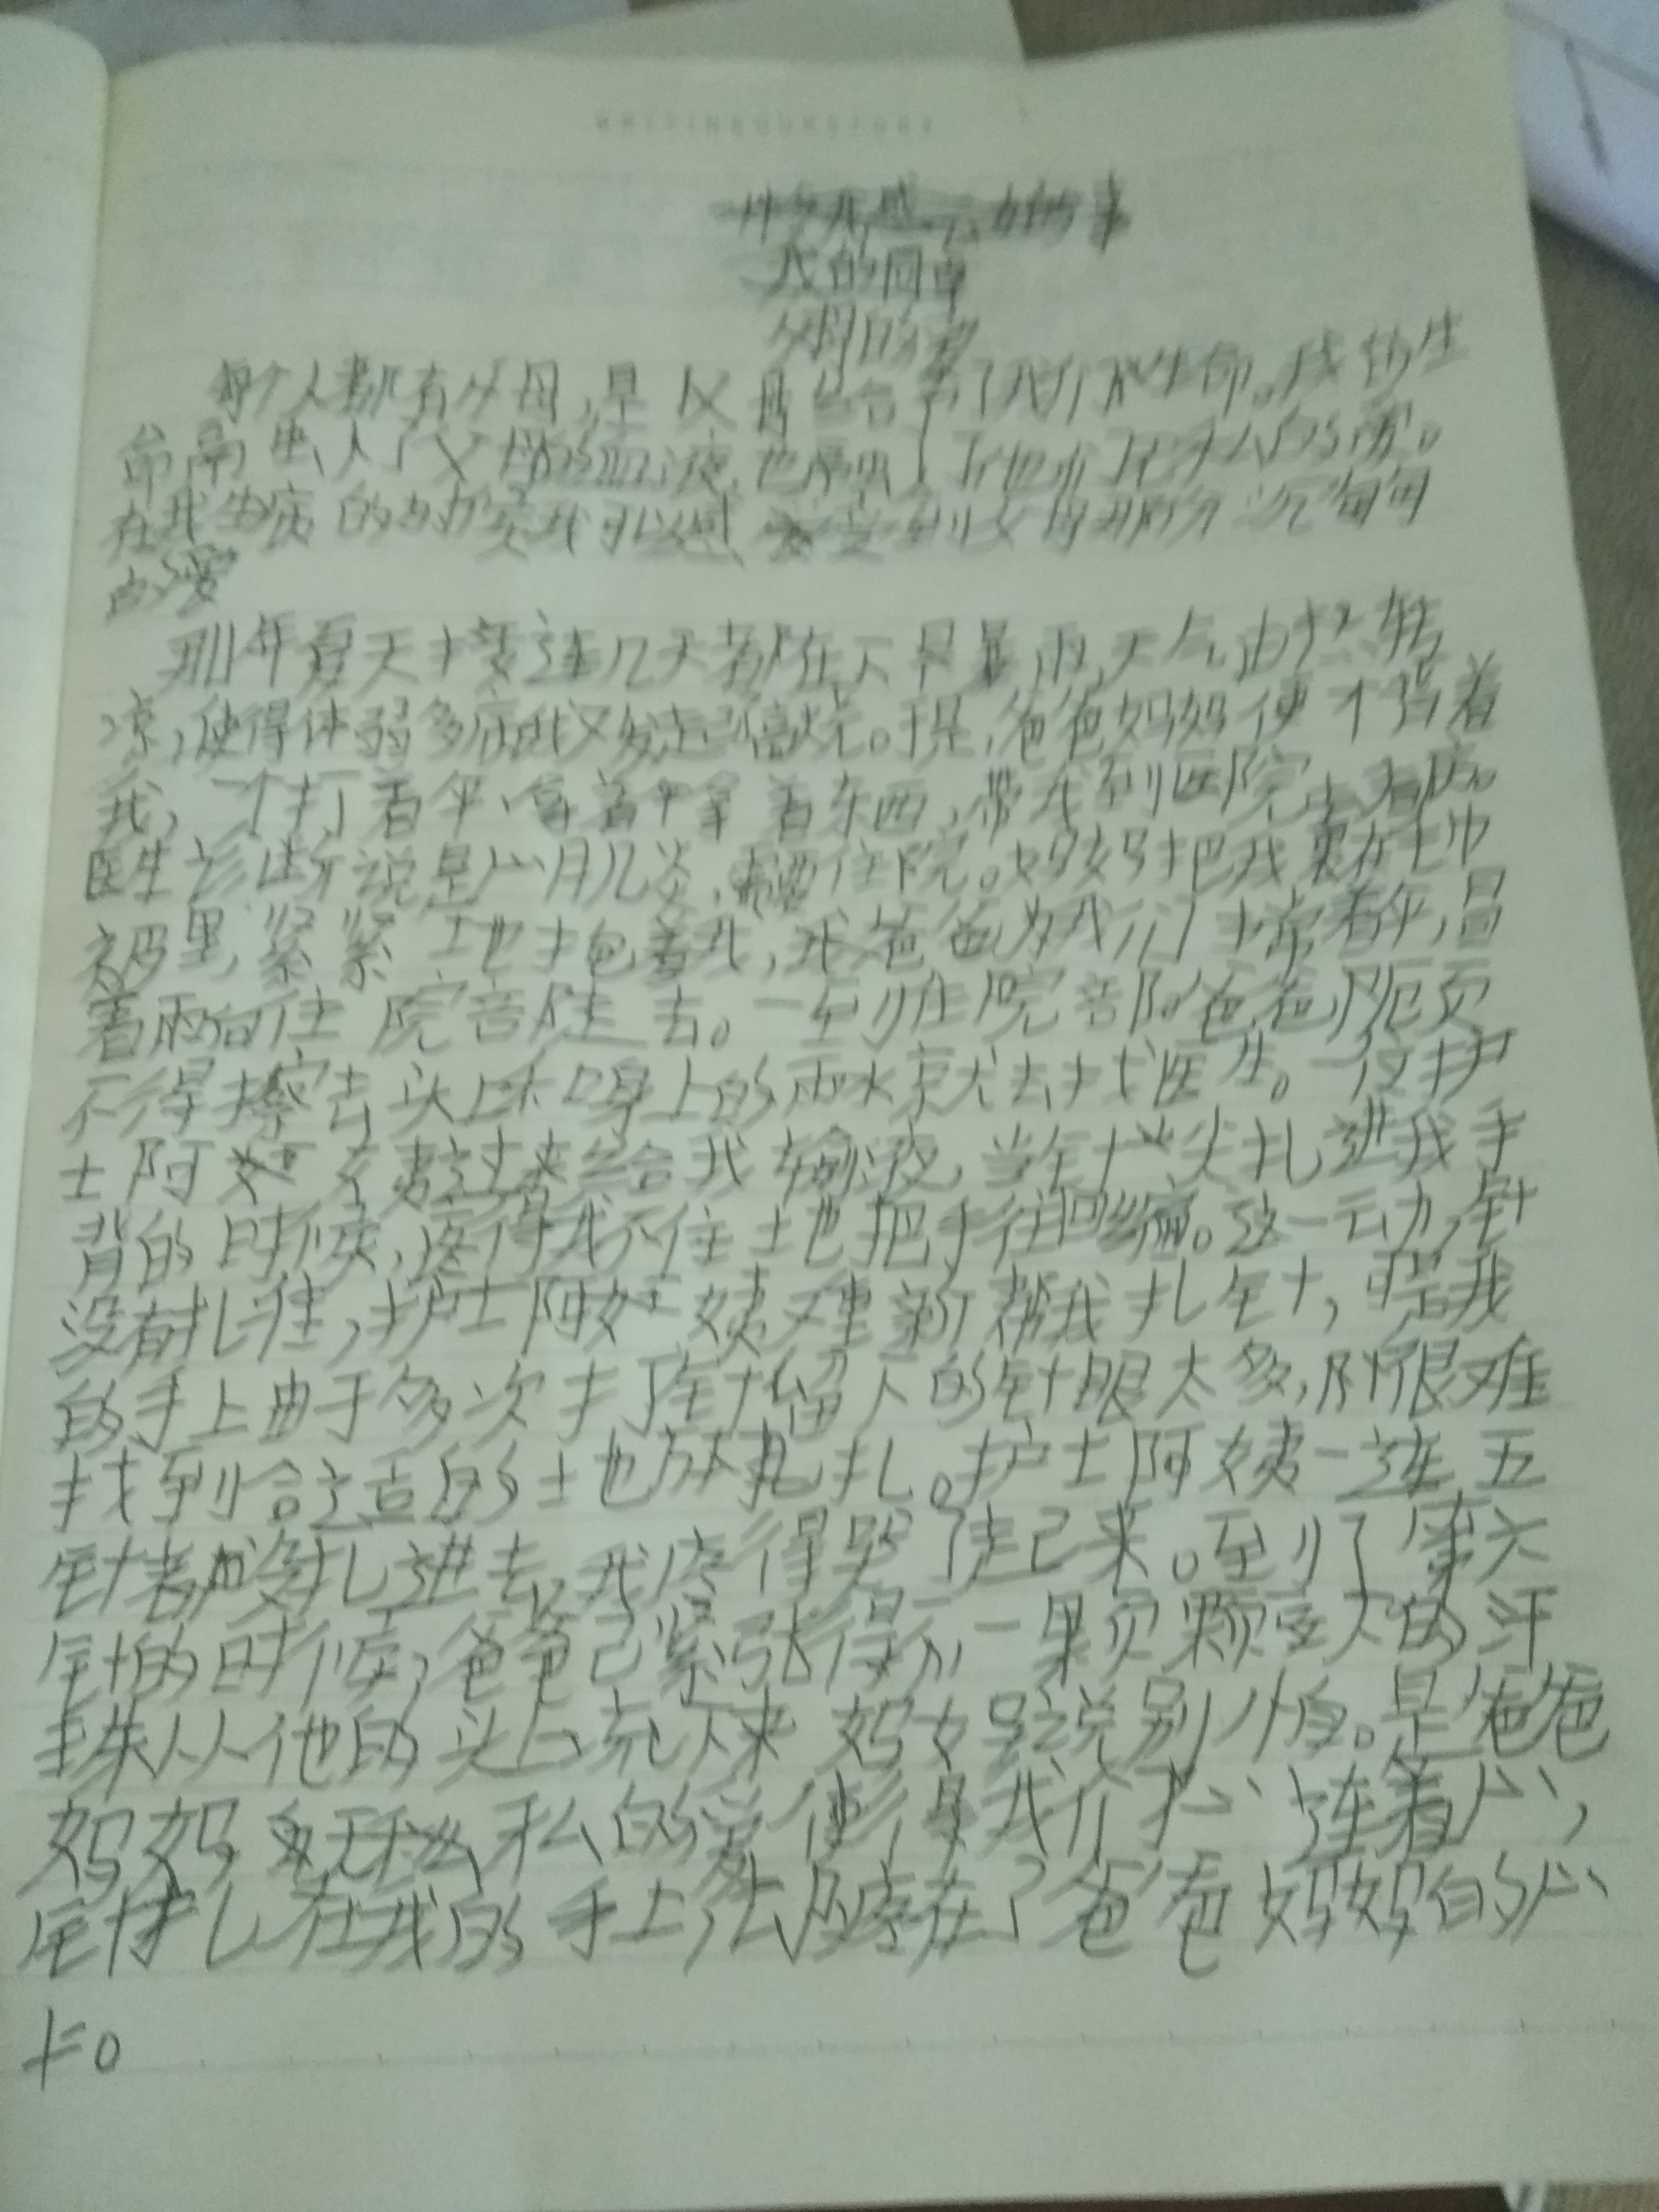 一件令我感动的事
我的同桌
父母的爱
每个人都有父母,是父母给予了我们生命。我的生
命高出人了父母的血液,也了他们无私的爱。
在我生病的时候我可以感受到父母那份沉甸甸
的爱
那年夏天接连几天都在下暴雨,天气由热转
凉,使得体弱多病我又发起了高烧。于是,爸爸妈妈便一个背着
我,一个打着伞拿着东西,带我到医院去看病。
医生诊断说是心肌炎,需要住院。妈妈把我裹在毛巾
被里,紧紧地抱着我,爸爸为我们撑着伞,冒
着雨向住院部走去。一到住院部爸爸顾
不得擦去头上和身上的雨水就去找医生。一位护
士阿姨过来给我输液,当针尖扎进我手
背的时候,疼得我不住地把手往回缩。这一动,针
没有扎准,护士阿姨又重新帮我扎针,可是我
的手上由于多次打针留下的针眼太多,所以很难
找到合适的地方扎。护士阿姨一连五
针都没扎进去,我疼得哭了起来。到了第六
针的时候,爸爸已紧张得一颗颗豆大的汗
珠从他的头上流下来妈妈说别怕。是爸爸
妈妈无私的爱使得我们心连着心,
针扎在我的手上,却疼在了爸爸妈妈的心
上。